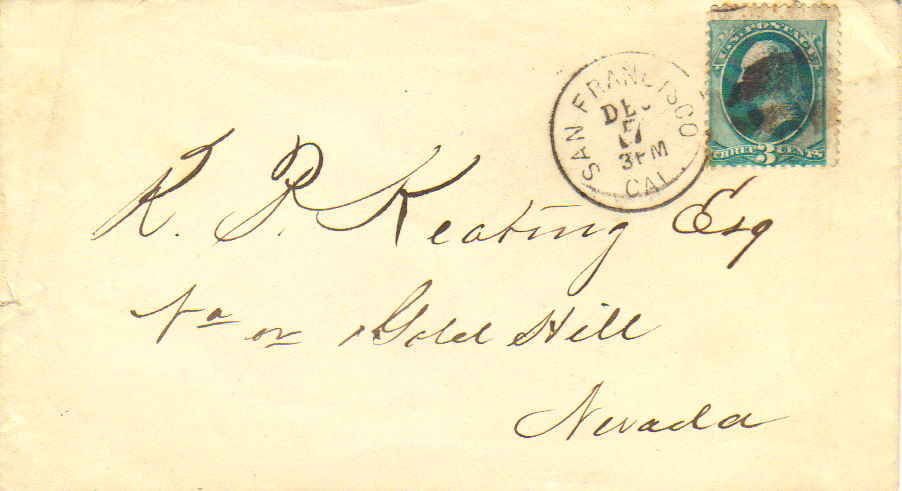 U.S. POSTAGE
THREE 3 CENTS
SAN FRANCISCO
DEC
3PM
CAL
R. P. Keating Esq
Va or Gold Hill
Nevada